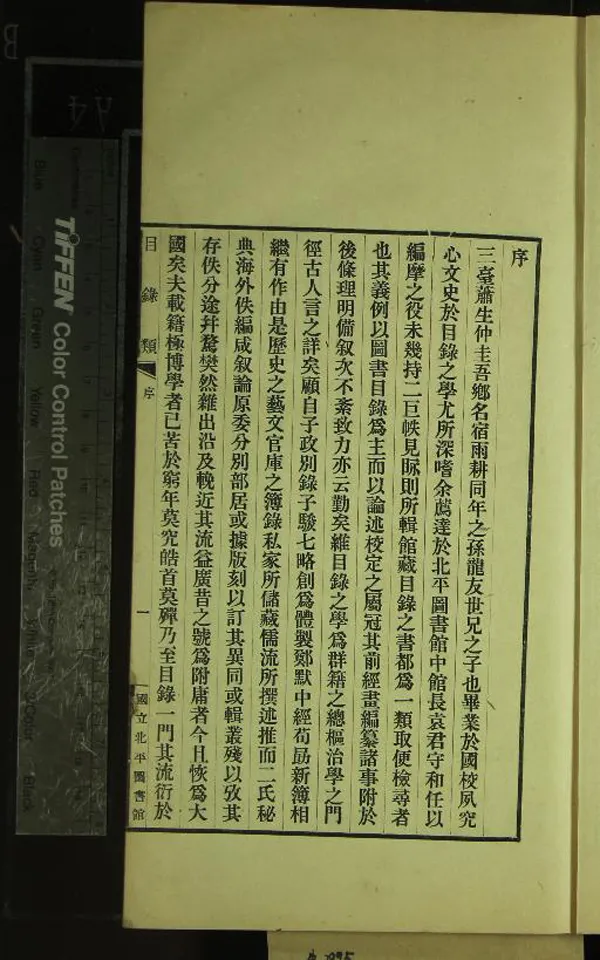 序
三臺蕭生仲圭吾鄉名宿雨耕同年之孫龍友世兄之子也畢業於國校夙究
心文史於目錄之學尤所深嗜余薦達於北平圖書館中館長袁君守和任以
編摩之役未幾持二巨帙見眎則所輯館藏目錄之書都爲一類取便檢尋者
也其義例以圖書目錄爲主而以論述校定之屬冠其前經畫編纂諸事附於
後條理明備叙次不紊致力亦云勤矣維目錄之學爲群籍之總樞治學之門
徑古人言之詳矣顧自子政別錄子駿七略創爲體製鄭默中經荀勗新簿相
繼有作由是歷史之藝文官庫之簿錄私家所儲藏儒流所撰述推而二氏秘
典海外佚編咸叙論原委分別部居或據版刻以訂其異同或輯叢殘以攷其
存佚分途幷騖樊然雜出沿及輓近其流益廣昔之號爲附庸者今且恢爲大
國矣夫載籍極博學者已苦於窮年莫究皓首莫殫乃至目錄一門其流衍於
目錄類 序 一 國立北平圖書館
TIFFEN Color Control Patches
Blue
Cyan
Green
Yellow
Red
A4
B